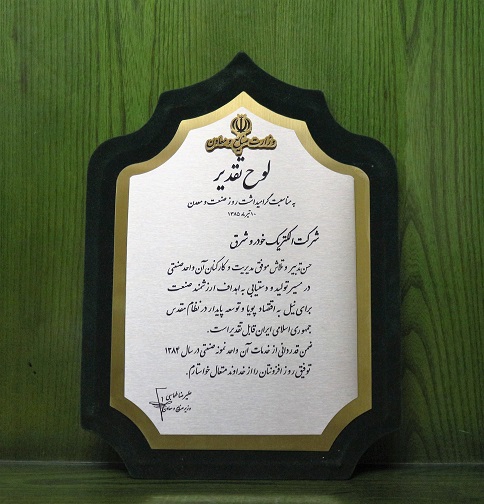 وزارت صنایع و معادن
لوح تقدیر
به مناسبت گرامیداشت روز صنعت و معدن
۱۰ تیرماه ۱۳۸۵
شرکت الکتریک خودرو شرق
حسن تدبیر و تلاش موفق مدیریت و کارکنان آن واحد صنعتی
در مسیر تولید و دستیابی به اهداف ارزشمند صنعت
برای نیل به اقتصاد پویا و توسعه پایدار در نظام مقدس
جمهوری اسلامی ایران قابل تقدیر است.
ضمن قدردانی از خدمات آن واحد نمونه صنعتی در سال ۱۳۸۴
توفیق روز افزونتان را از خداوند متعال خواستارم.
علیرضا طهماسبی
وزیر صنایع و معادن